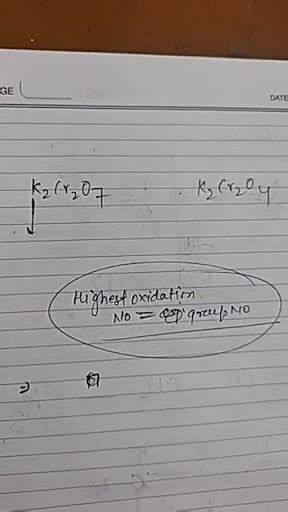 GE
DATE
K2Cr2O7 K2Cr2O4
Highest oxidation
NO = group NO
⇒